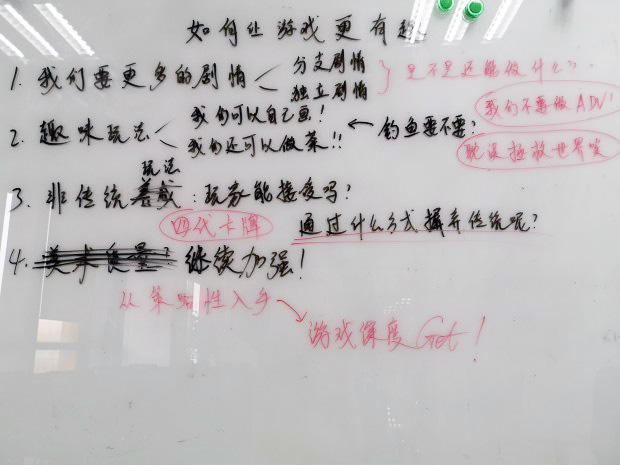 如何让游戏更有趣
1. 我们要更多的剧情 < 分支剧情 独立剧情 } 是不是还能做什么??
我们不要做ADV!
2. 趣味玩法 < 我们可以自己画! 我们还可以做菜!! ← 钓鱼要不要?
耽误拯救世界哎
3. 非传统玩法:玩家能接受吗?
四代卡牌 通过什么方式摒弃传统呢?
4. 继续加强!
从策略性入手
游戏深度Get!